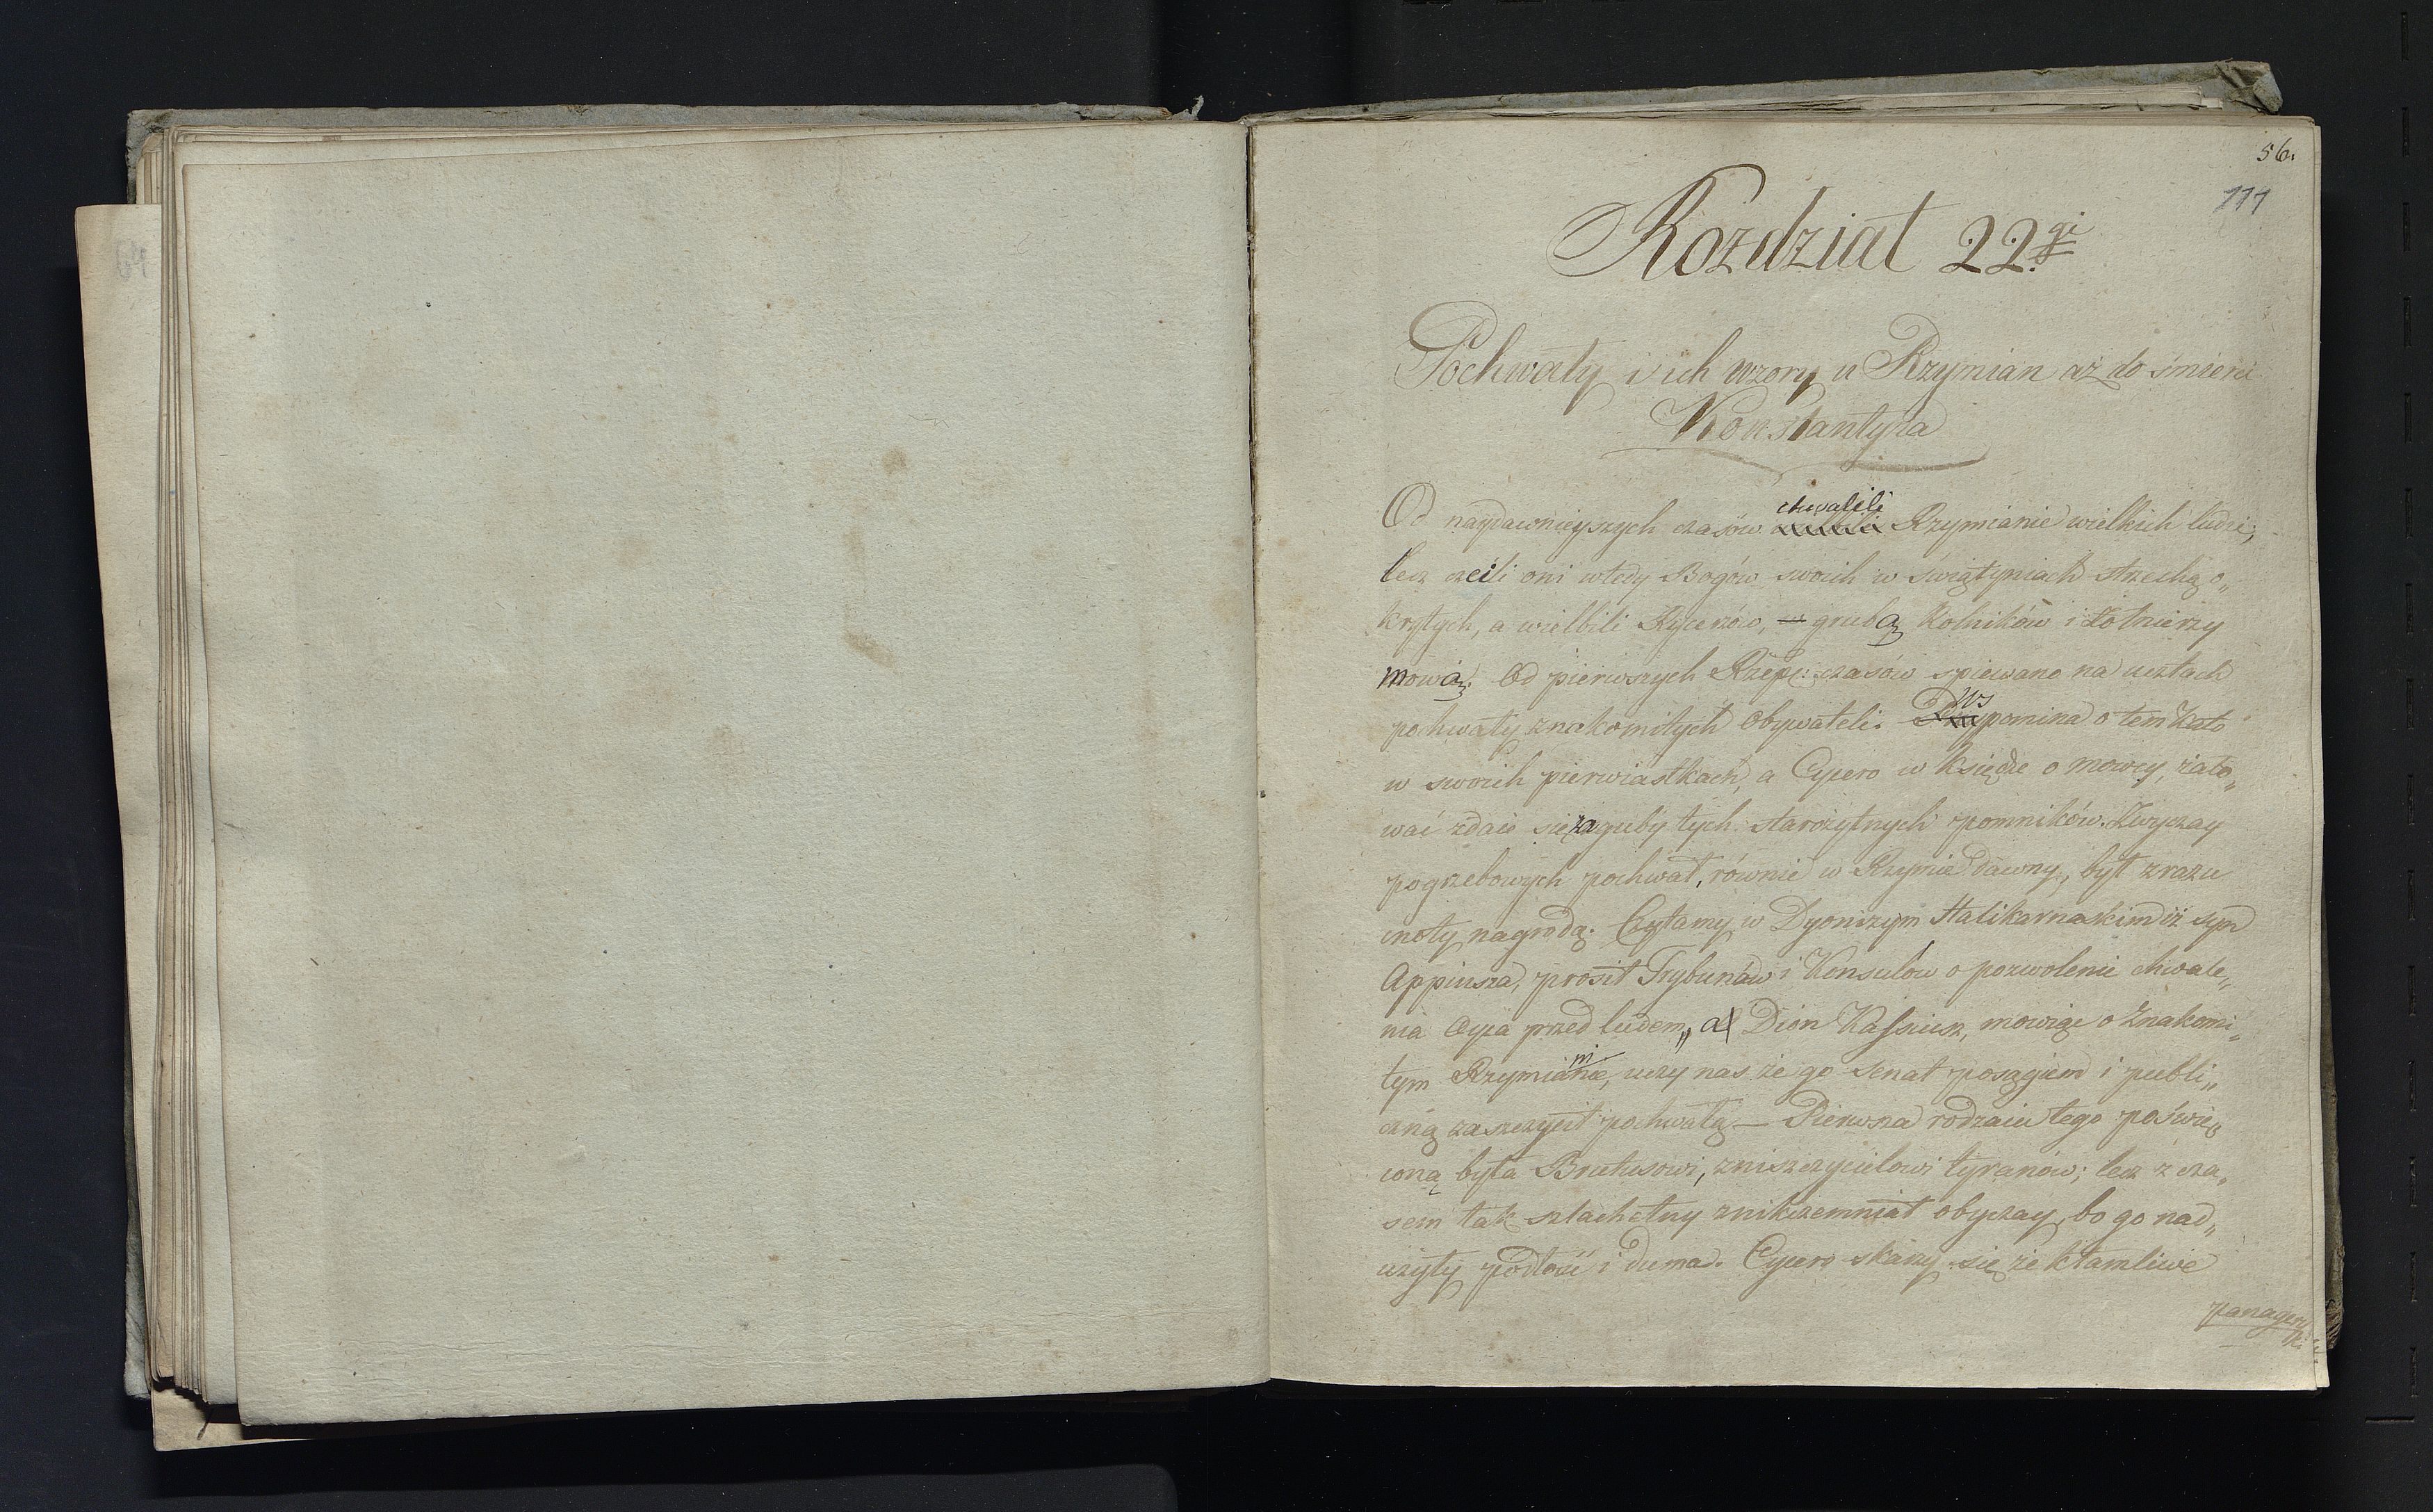 64
56.
111
Rozdział 22gi
Pochwały i ich wzory u Rzymian aż do śmierci
Konstantyna
chwalili
Od naydawnieyszych czasów wielbili Rzymianie wielkich ludzi;
lecz czcili oni wtedy Bogów swoich w świątyniach strzechą o„
krytych, a wielbili Rycerzów, w grubą Rolników i Żołnierzy
mową. Od pierwszych Rzepl: czasów spiewano na ucztach
pochwały znakomitych Obywateli. Wspomina o tem Kato
w swoich pierwiastkach, a Cycero w Księdze o mowcy, żało„
wać zdaie się zaguby tych starożytnych pomników. Zwyczay
pogrzebowych pochwał, równie w Rzymie dawny, był zrazu
cnoty nagrodą. Czytamy w Dyonizym Halikarnaskim iż syn
Appiusza, prosił Trybunów i Konsulów o pozwolenie chwale„
nia Oyca przed ludem, a Dion Kassiusz, mowiąc o Znakomi„
tym Rzymianinie, uczy nas że go Senat posągiem i publi„
czną zaszczycił pochwałą — Pierwsza rodzaiu tego poświę„
coną była Brutusowi, zniszczycielowi tyranów; lecz z cza„
sem tak szlachetny znikczemniał obyczay, bo go nad„
użyły podłość i duma. Cycero skarży się że kłamliwe
panagery
ki